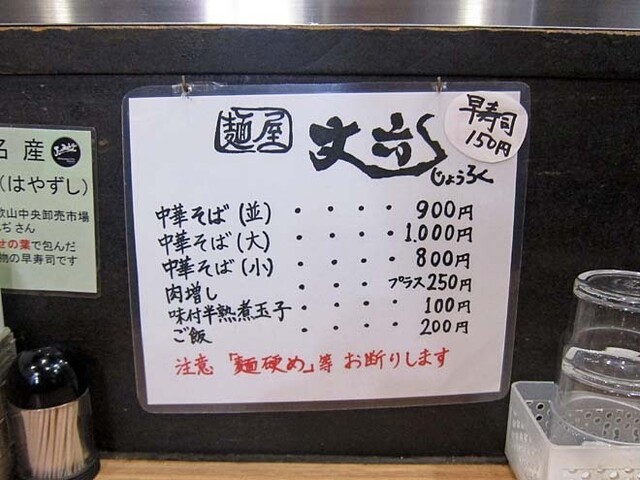 麺屋 丈六
じょうろく
早寿司
150円
中華そば(並)・・・・900円
中華そば(大)・・・・1.000円
中華そば(小)・・・・800円
肉増し・・・・プラス250円
味付半熟煮玉子・・・・100円
ご飯・・・・200円
注意「麺硬め」等 お断りします
名産
(はやずし)
歌山中央卸売市場
ぢさん
せの葉で包んだ
物の早寿司です